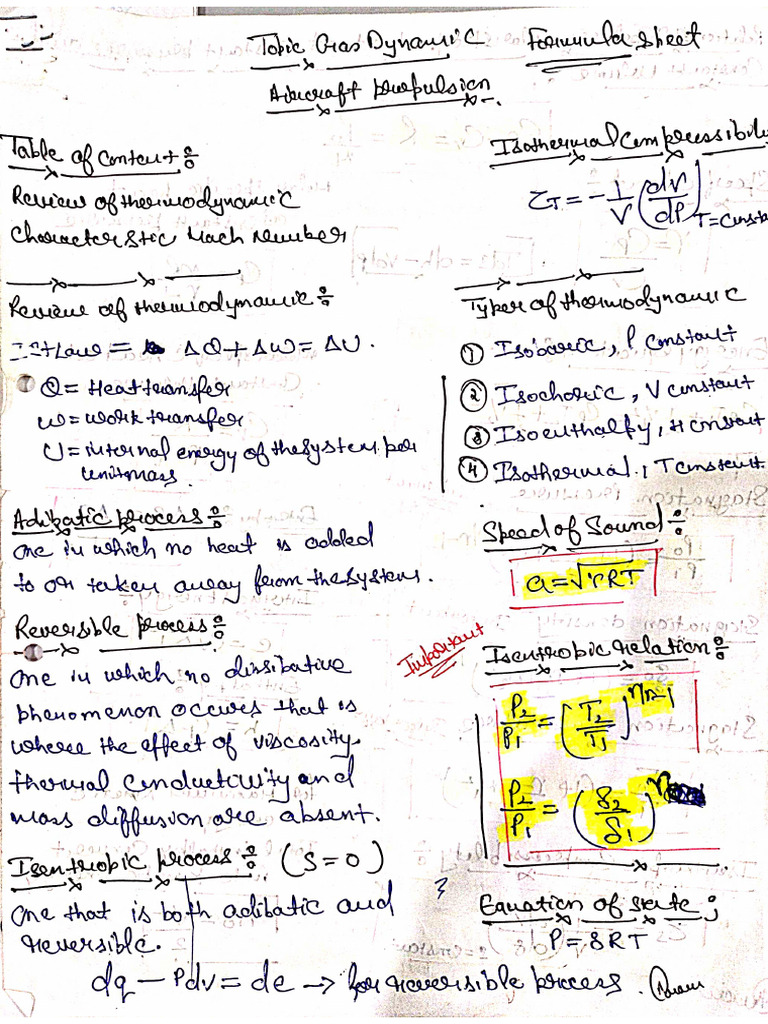 Topic Gas Dynamic Formula Sheet
Aircraft propulsion
Table of Content :
Review of thermodynamic
characteristic Mach number
Review of thermodynamic :
Ist Law = ΔQ + ΔW = ΔU.
Q = Heat transfer
W = work transfer
U = internal energy of the system per
unit mass.
Adibatic process :
one in which no heat is added
to or taken away from the system.
Reversible process :
one in which no dissipative
phenomenon occurs that is
where the effect of viscosity,
thermal conductivity and
mass diffusion are absent.
Isentropic process : (S=0)
one that is both adibatic and
reversible.
dq - Pdv = de → for reversible process.
Isothermal Compressibili
τT = -1/V (dv/dP) T = Consta
Types of thermodynamic
① Isobaric, P constant
② Isochoric, V constant
③ Isoenthalpy, H constant
④ Isothermal, T constant.
Speed of Sound :
a = √rRT
Important
Isentropic relation :
P2/P1 = (T2/T1)^r/r-1
P2/P1 = (δ2/δ1)^r
Equation of state ;
P = δRT